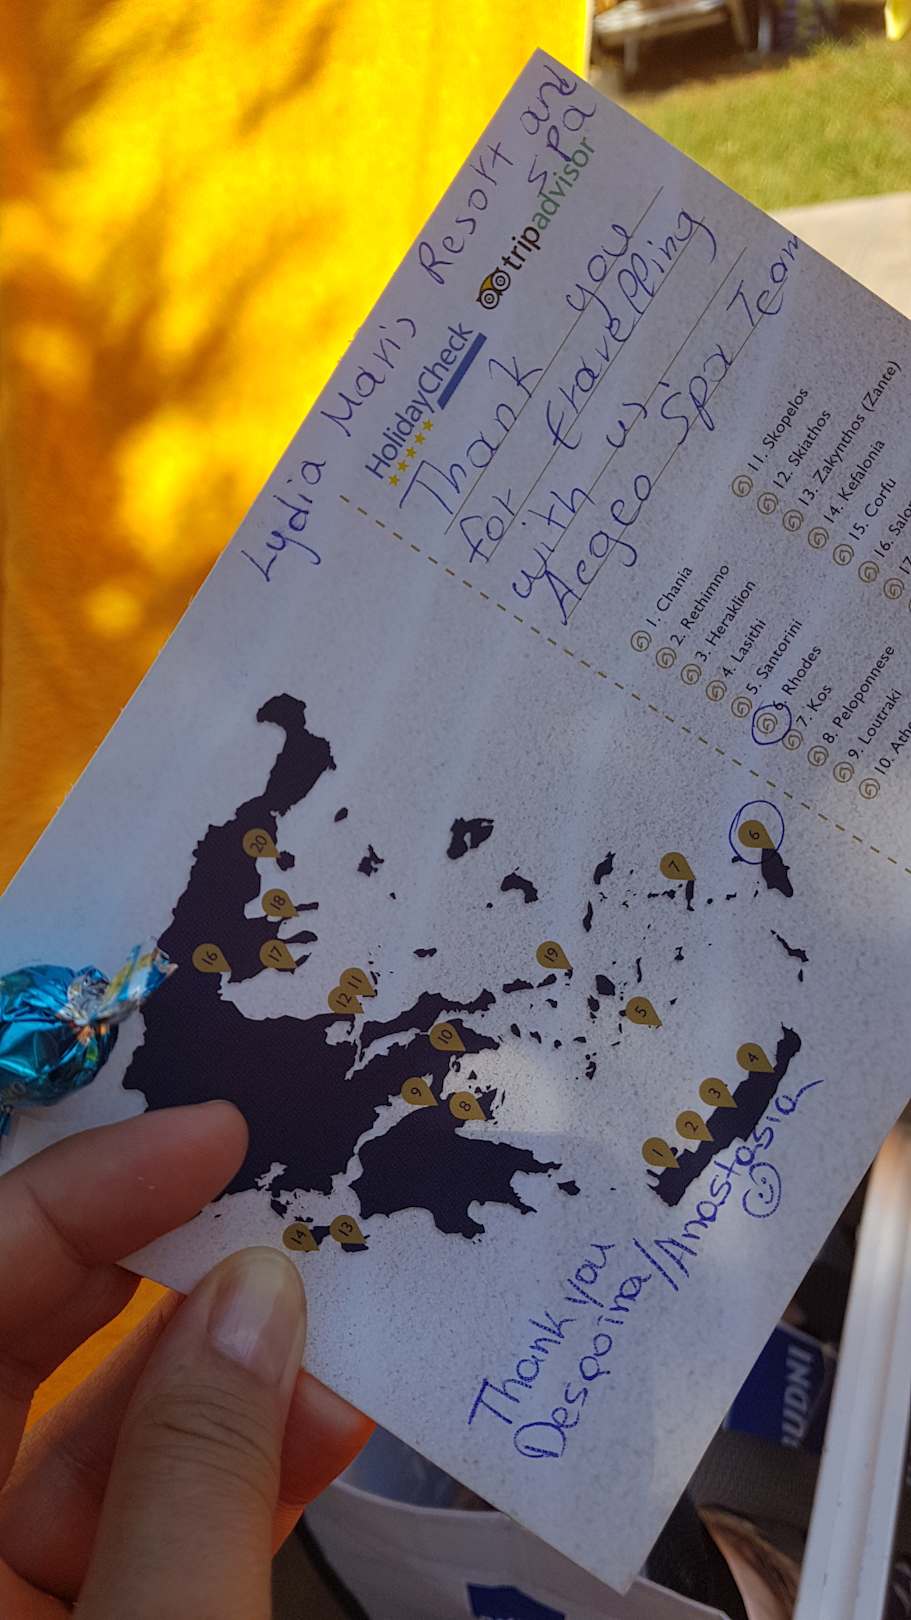 Lydia Maris Resort and
Spa
HolidayCheck
tripadvisor
Thank you
for travellping
with us!
Aegeo Spa Team
1. Chania
2. Rethimno
3. Heraklion
4. Lasithi
5. Santorini
6. Rhodes
7. Kos
8. Peloponnese
9. Loutraki
10.
11. Skopelos
12. Skiathos
13. Zakynthos (Zante)
14. Kefalonia
15. Corfu
16.
17.
20
18
17
16
12
11
19
10
9
8
5
7
6
4
3
2
1
14
13
Thank you
Despoina/Anastasia